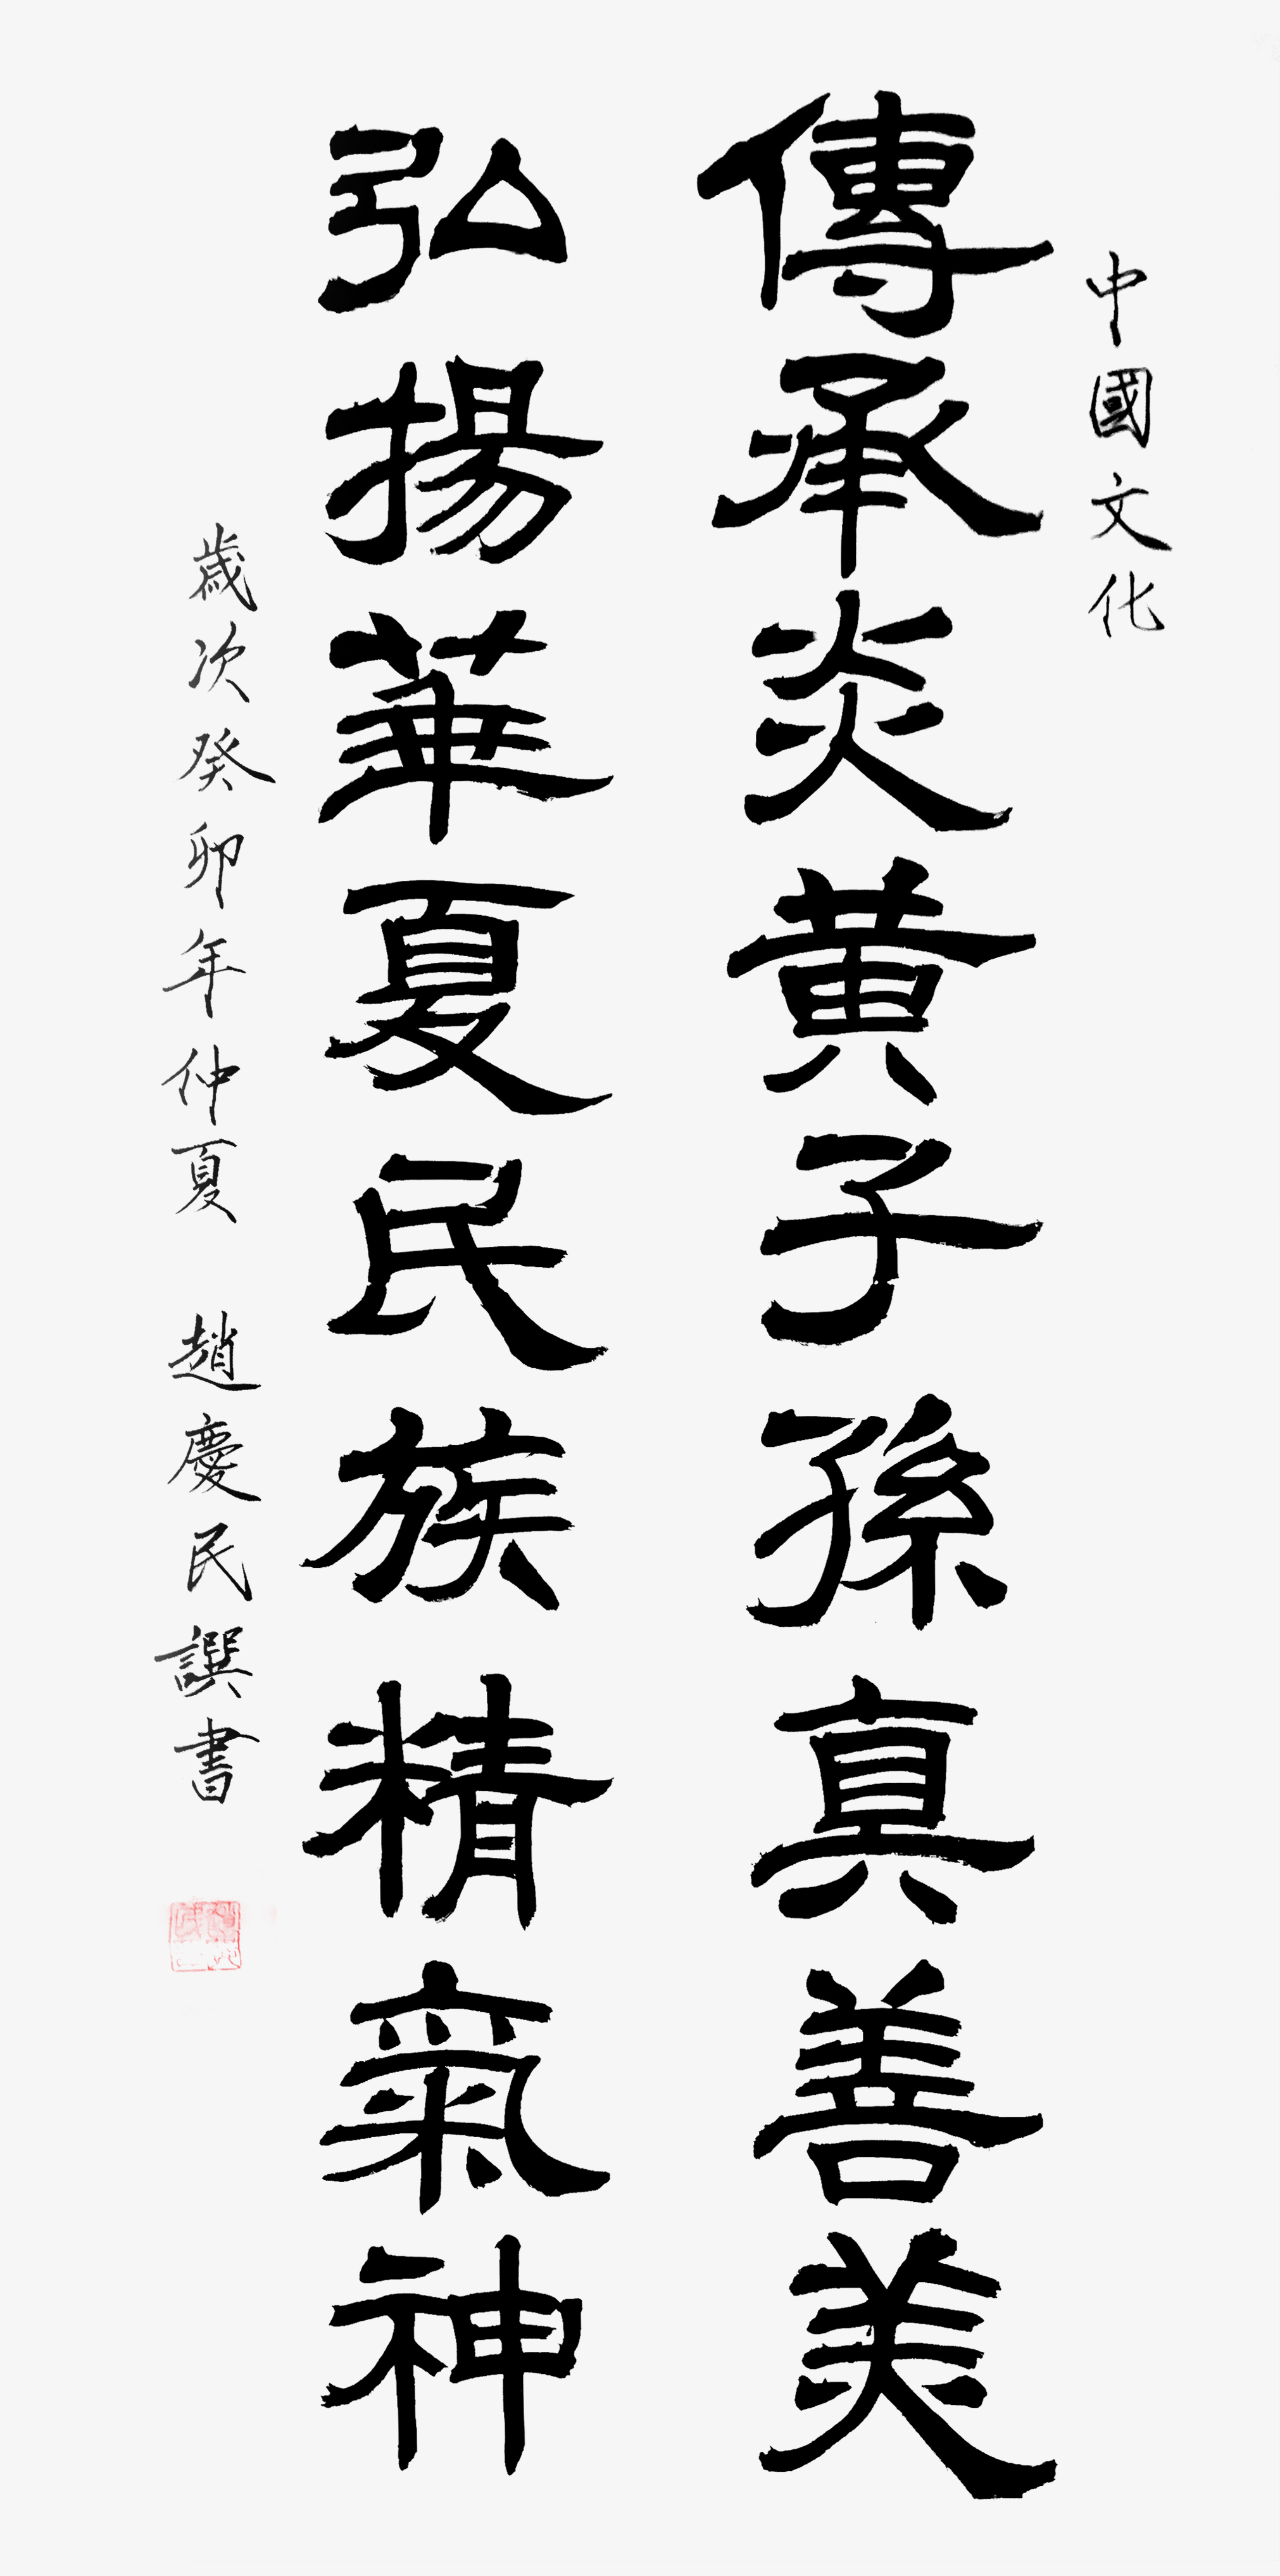 中國文化
傳承炎黃子孫真善美
弘揚華夏民族精氣神
歲次癸卯年仲夏 趙慶民譔書